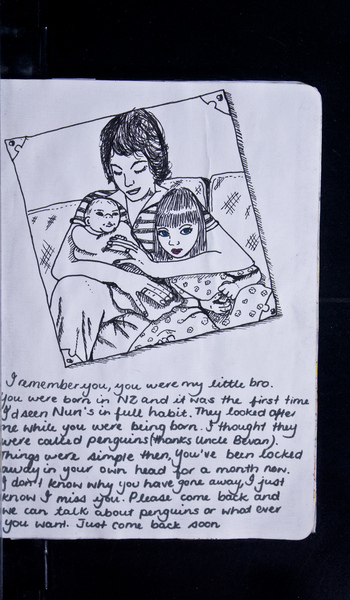 I remember you, you were my little bro.
You were born in NZ and it was the first time
I'd seen Nun's in full habit. They looked after
me while you were being born. I thought they
were called penguins (thanks Uncle Bevan).
Things were simple then, You've been locked
away in your own head for a month now.
I don't know why you have gone away, I just
know I miss you. Please come back and
we can talk about penguins or what ever
you want. Just come back soon